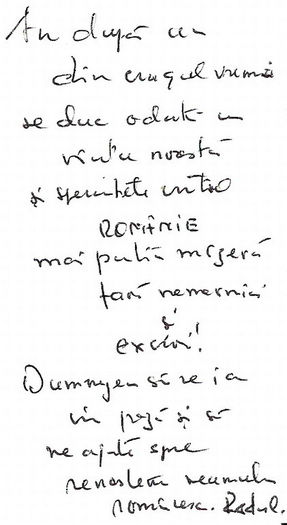 An după an
din crugul vremii
se duc odată cu
viața noastră
și speranțele într-o
ROMÂNIE
mai puțin mizeră
fără nemernici
și
Dumnezeu să ne ia
în pază și să
ne ajute spre
renașterea neamului
românesc. Radul.